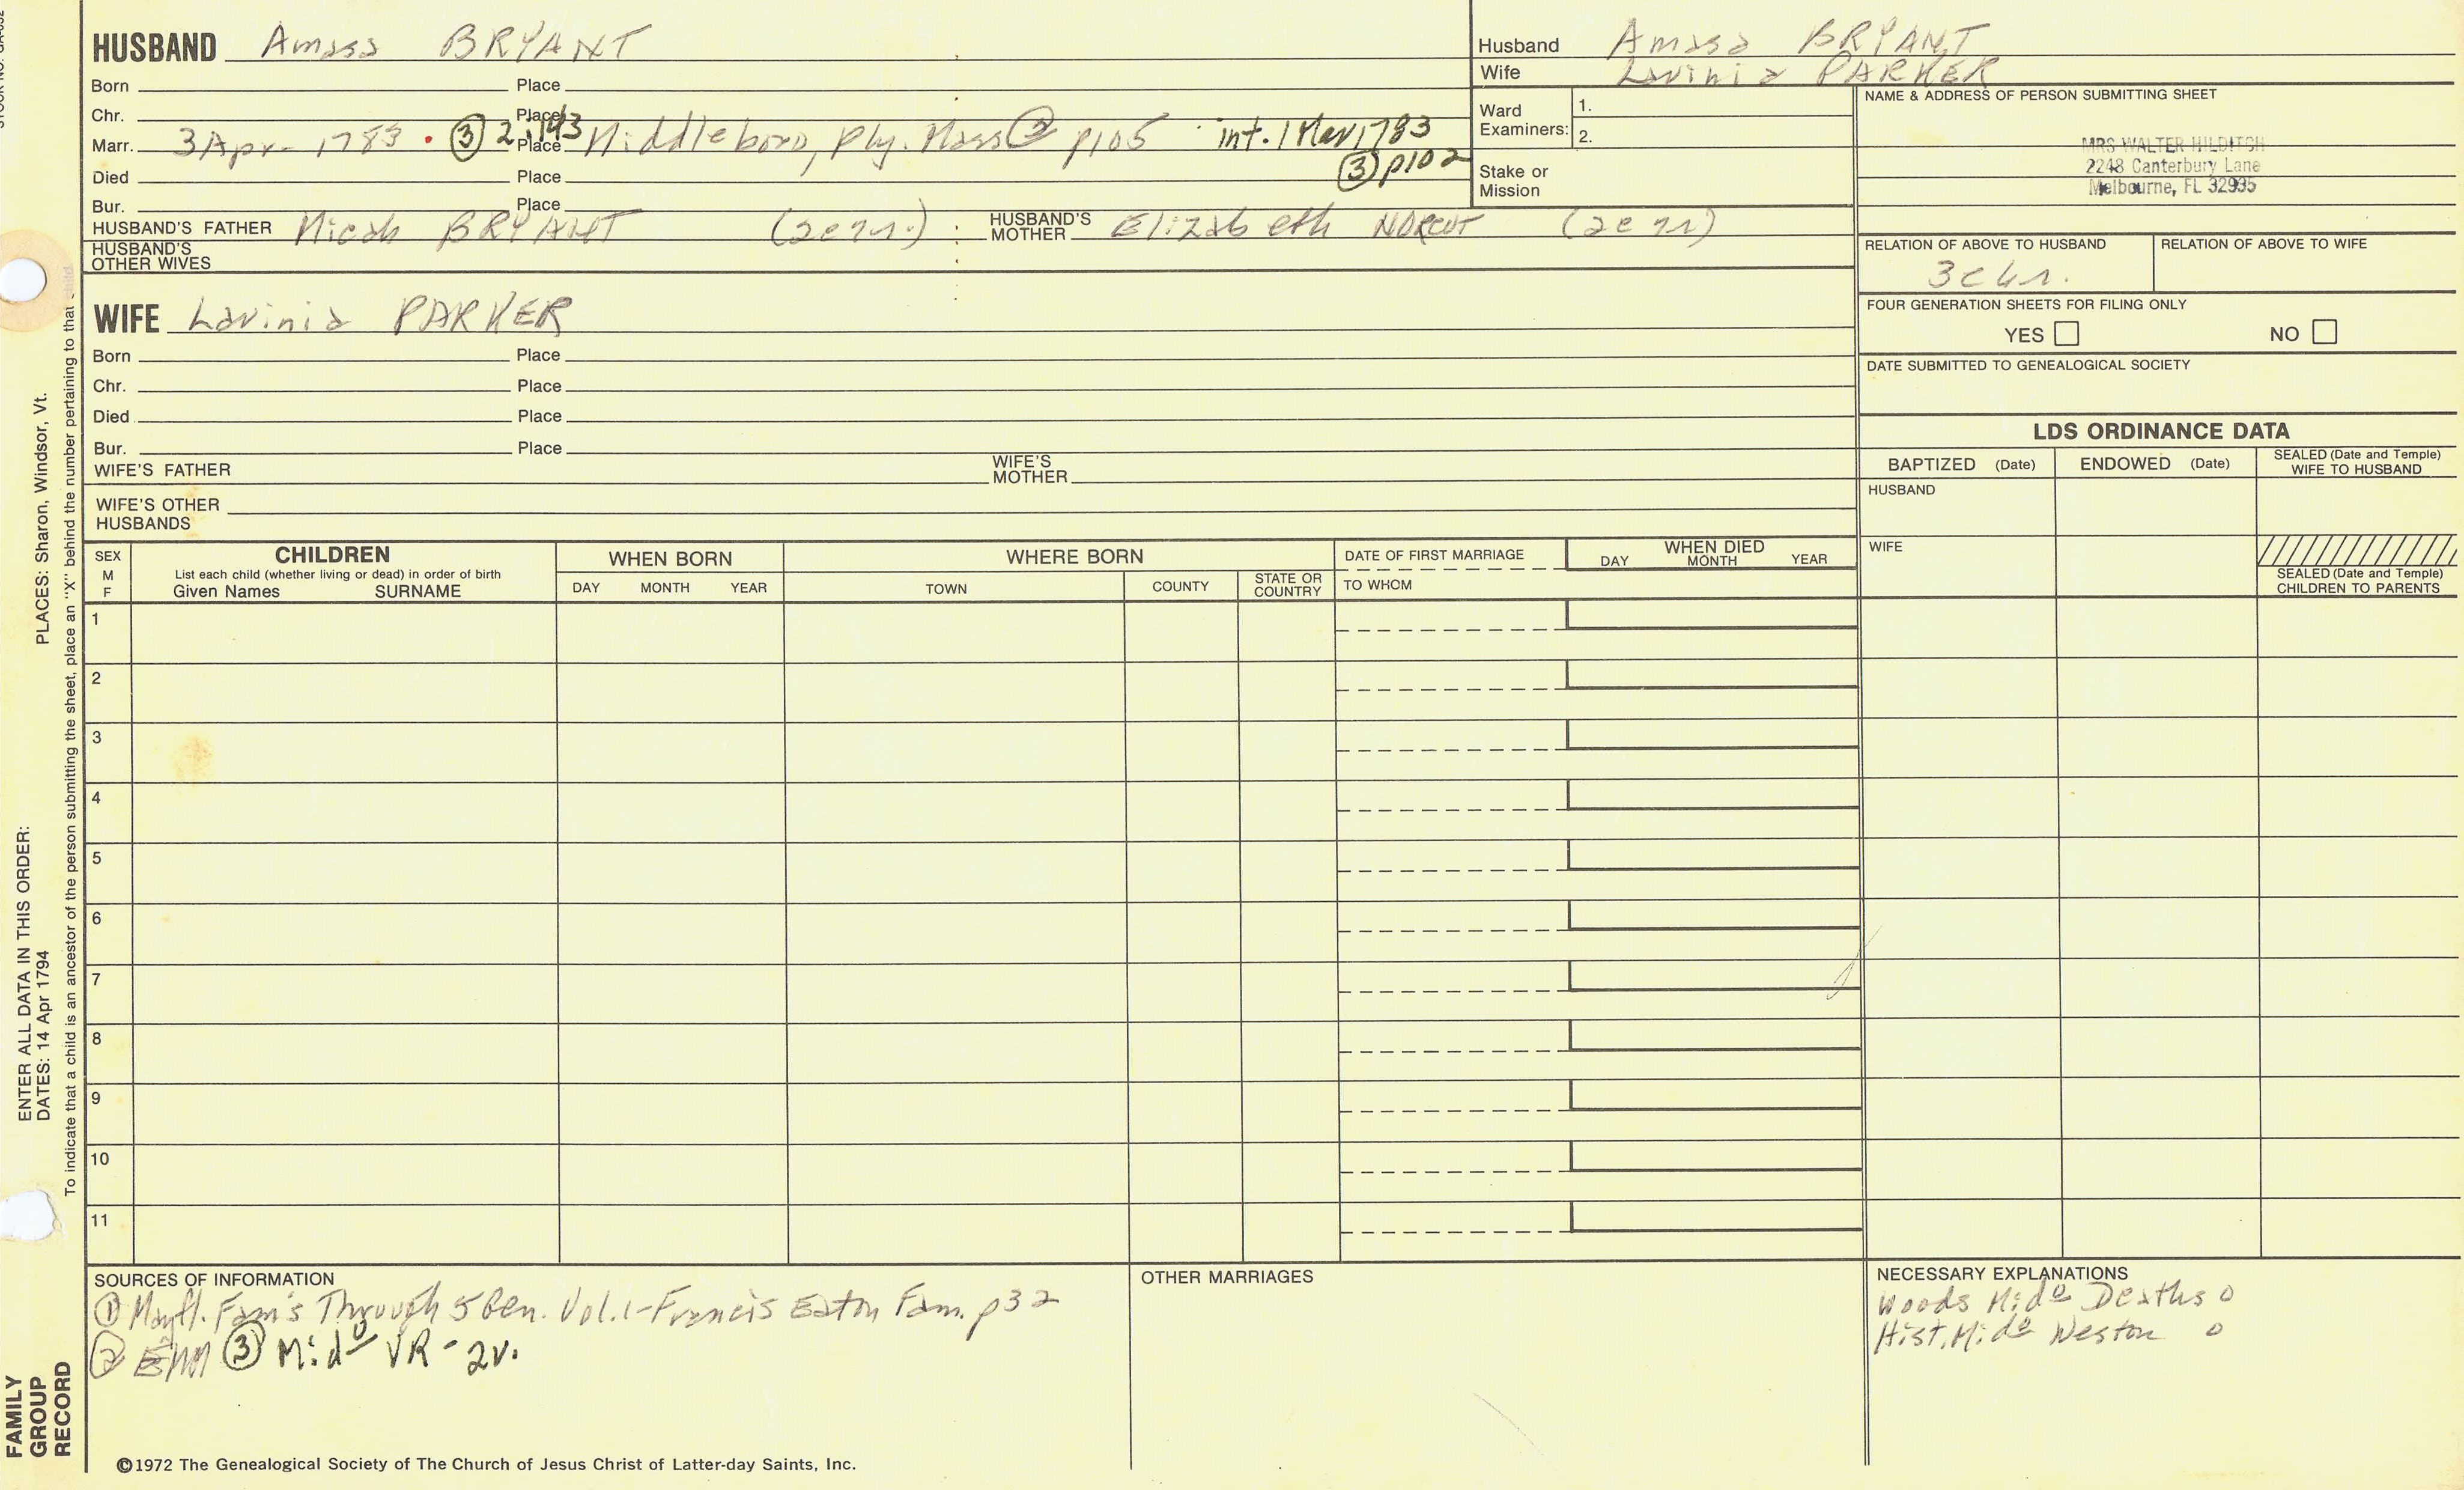 HUSBAND Amasa BRYANT
Born Place
Chr. Place
Marr. 3 Apr 1783 ③ 2:143 Place Middleboro, Ply. Mass ② p105 int. 1 Mar 1783
③ p102
Died Place
Bur. Place
HUSBAND'S FATHER Micah BRYANT HUSBAND'S MOTHER Elizabeth NORCUT
HUSBAND'S OTHER WIVES
Husband Amasa BRYANT
Wife Lavinia PARKER
Ward Examiners: 1.
2.
Stake or Mission
NAME & ADDRESS OF PERSON SUBMITTING SHEET
MRS WALTER HILDITCH
2248 Canterbury Lane
Melbourne, FL 32935
RELATION OF ABOVE TO HUSBAND RELATION OF ABOVE TO WIFE
FOUR GENERATION SHEETS FOR FILING ONLY
YES NO
DATE SUBMITTED TO GENEALOGICAL SOCIETY
WIFE Lavinia PARKER
Born Place
Chr. Place
Died Place
Bur. Place
WIFE'S FATHER WIFE'S MOTHER
WIFE'S OTHER HUSBANDS
LDS ORDINANCE DATA
BAPTIZED (Date) ENDOWED (Date) SEALED (Date and Temple) WIFE TO HUSBAND
HUSBAND
WIFE
SEALED (Date and Temple) CHILDREN TO PARENTS
SEX M F
CHILDREN
List each child (whether living or dead) in order of birth
Given Names SURNAME
WHEN BORN
DAY MONTH YEAR
WHERE BORN
TOWN COUNTY STATE OR COUNTRY
DATE OF FIRST MARRIAGE
TO WHOM
WHEN DIED
DAY MONTH YEAR
1
2
3
4
5
6
7
8
9
10
11
SOURCES OF INFORMATION
① Mayfl. Fam's Through 5 Gen. Vol.1-Francis Eaton Fam. p32
② ③ Mido VR - 2v.
OTHER MARRIAGES
NECESSARY EXPLANATIONS
Woods Mido Deaths o
Hist. Mido Weston o
©1972 The Genealogical Society of The Church of Jesus Christ of Latter-day Saints, Inc.
ENTER ALL DATA IN THIS ORDER:
DATES: 14 Apr 1794 PLACES: Sharon, Windsor, Vt.
To indicate that a child is an ancestor of the person submitting the sheet, place an "X" behind the number pertaining to that child.
FAMILY
GROUP
RECORD